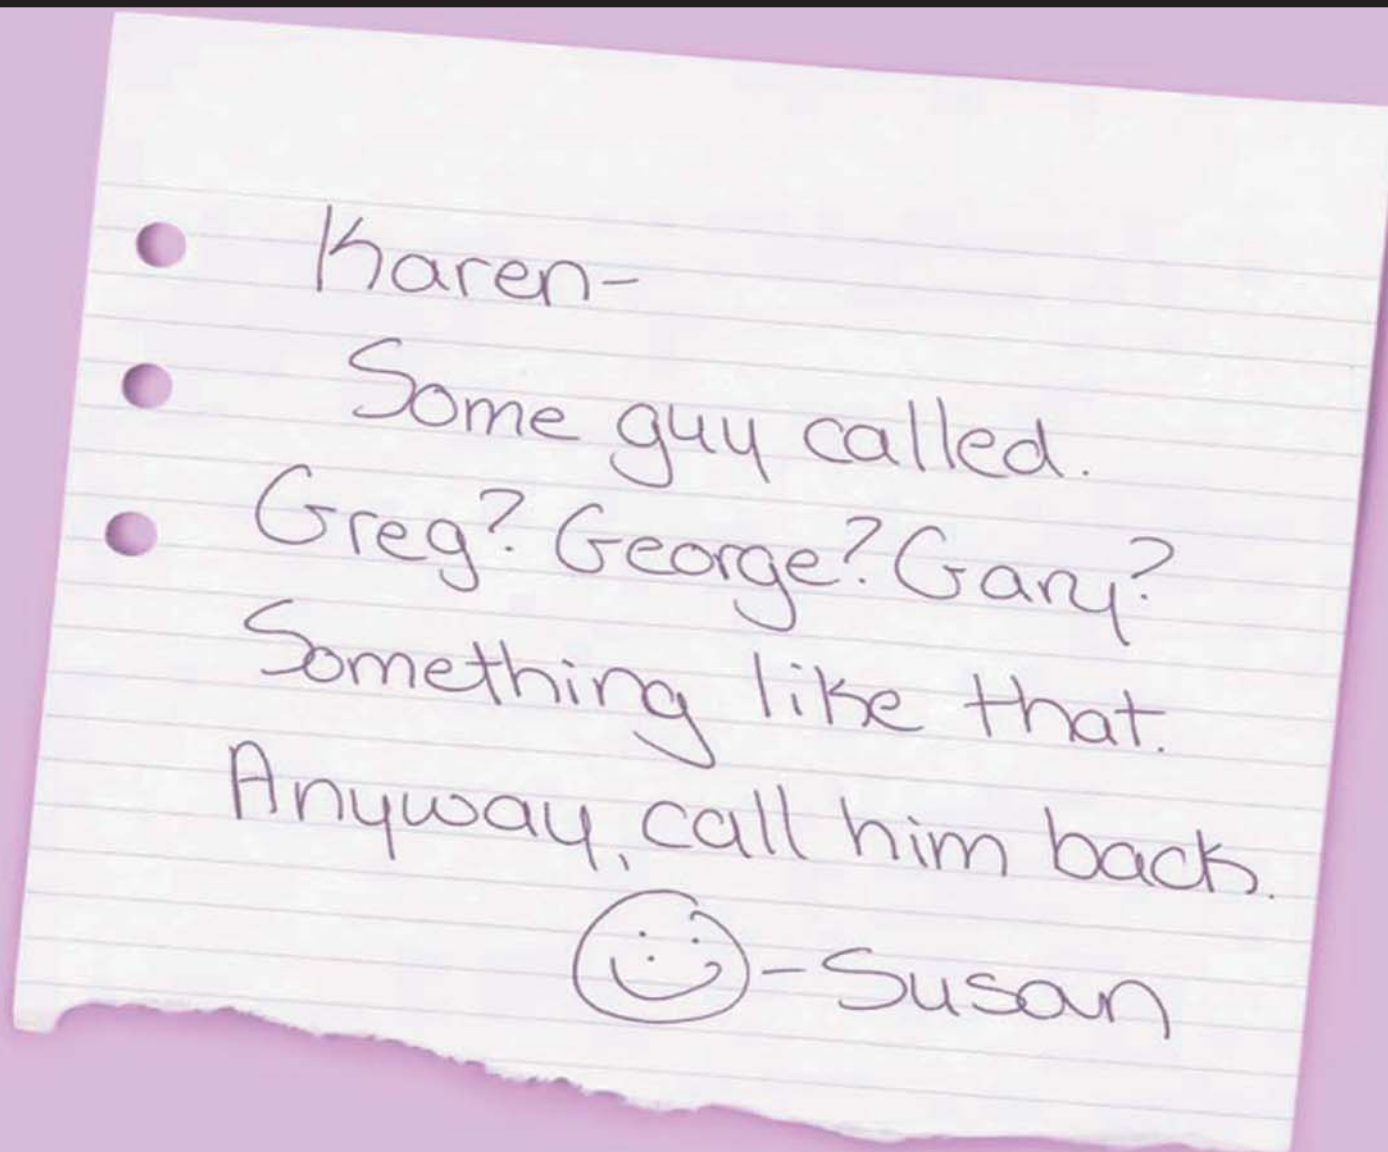 Karen-
Some guy called.
Greg? George? Gary?
Something like that.
Anyway, call him back.
-Susan